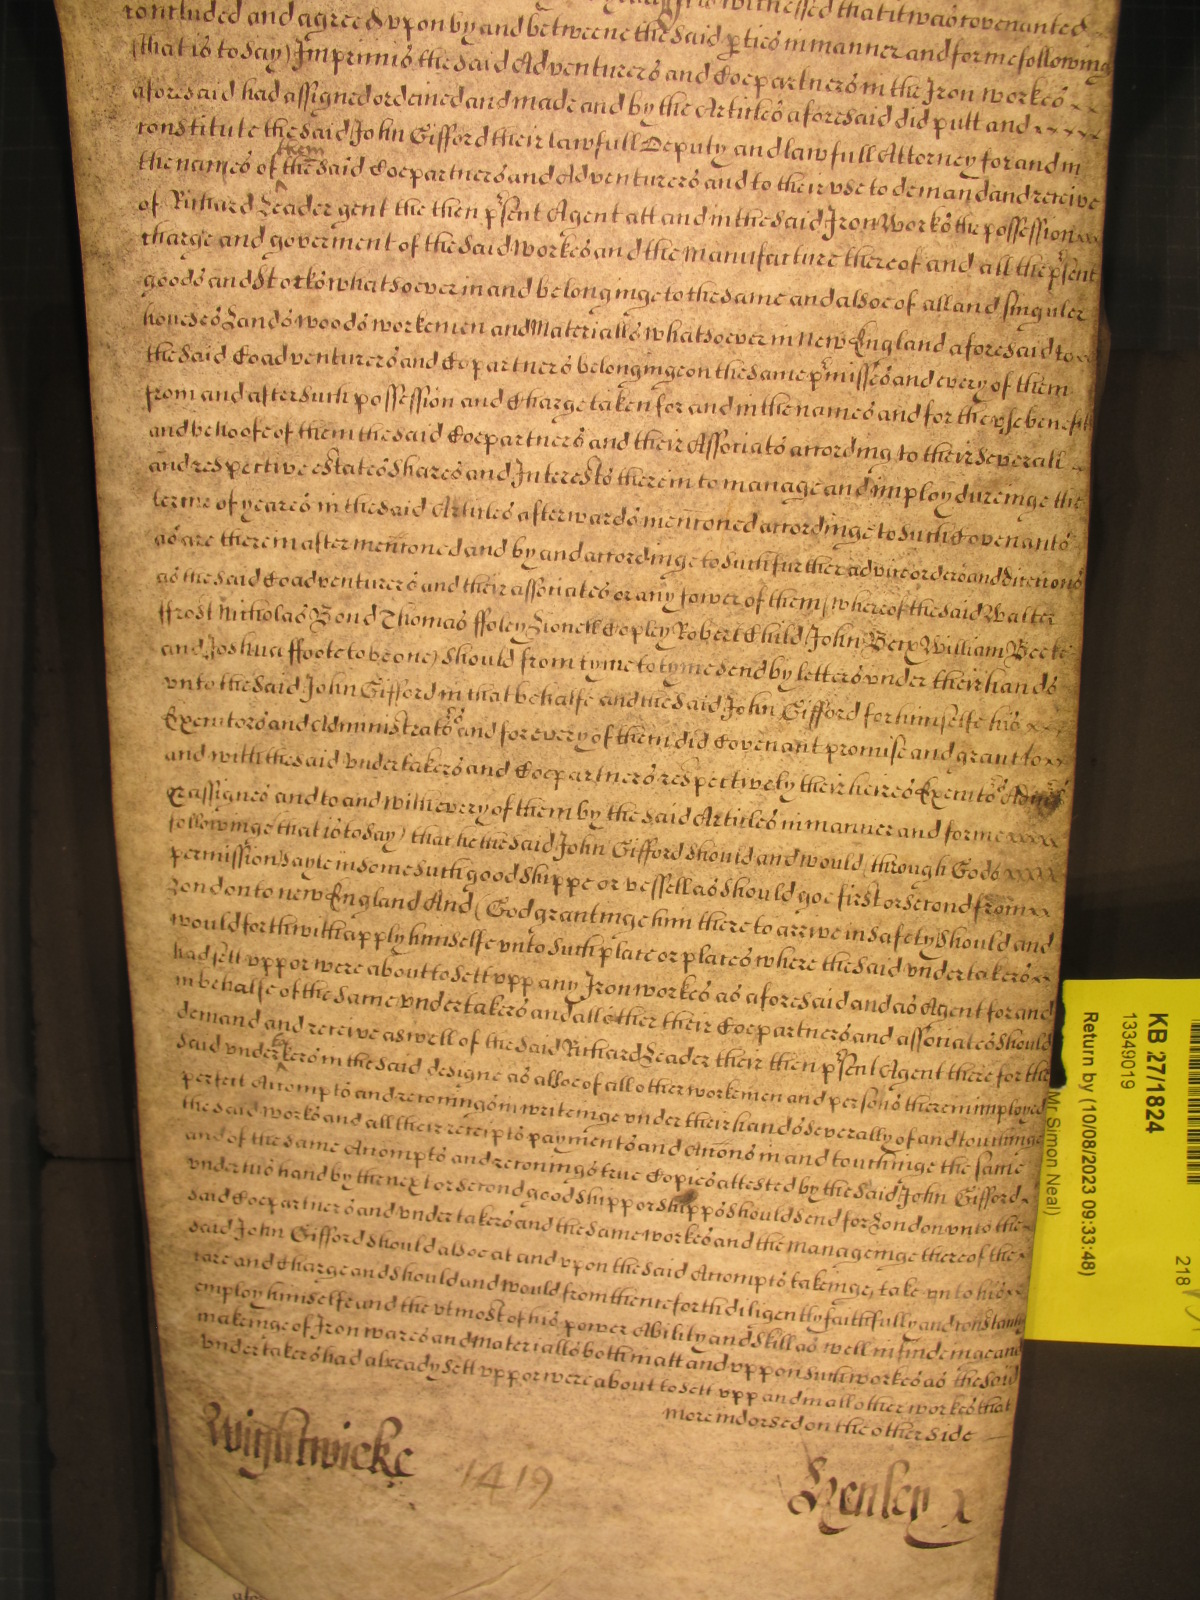 witnessed that it was covenanted
concluded and agreed vpon by and betweene the said pties in manner and forme following
(that is to say) Imprimis the said Adventurers and Coepartners in the Iron workes
aforesaid had assigned ordeined and made and by the Articles aforesaid did putt and
constitute the said John Gifford their lawfull Deputy and lawfull Attorney for and in
the names of them the said Coepartners and Adventurers and to their vse to demand and receive
of Richard Leader gent the then psent Agent att and in the said Iron Works the possession
charge and goverment of the said workes and the manufacture thereof and all the psent
goods and Stocks whatsoever in and belonginge to the same and alsoe of all and singuler
houses Lands woods workemen and Materialls whatsoever in New England aforesaid to
the said Coadventurers and Copartners belonginge on the same pmisses and every of them
from and after such possession and Charge taken for and in the names and for the vse benefitt
and behoofe of them the said Coepartners and their Associats according to their severall
and respective estates Shares and Interests therein to manage and imploy dureinge the
terme of yeares in the said Articles afterwards mencioned accordinge to such Covenants
as are therein after mencioned and by and accordinge to such further advice orders and directions
as the said Coadventurers and their associates or any fower of them (whereof the said Walter
ffrost Nicholas Bond Thomas ffoley Lionell Copley Robert Child John Bex William Becke
and Joshua ffoote to be one) Should from tyme to tyme send by letters vnder their hands
vnto the said John Gifford in that behalfe and the said John Gifford for himselfe his
Executors and Administrators and for every of them did Covenant promise and grant to
and with the said vndertakers and Coepartners respectively their heires Executors Admrs
& assignes and to and with every of them by the said Articles in manner and forme
followinge that is to say) that he the said John Gifford should and would (through Gods
permission) sayle in some such good Shippe or vessell as should goe first or second from
London to new England And (God grantinge him there to arrive in Safety) Should and
would forthwith apply himselfe vnto such place or places where the said vndertakers
had sett vpp or were about to sett vpp any Iron workes as aforesaid and as Agent for and
in behalfe of the same vndertakers and all other their Coepartners and associates should
demand and receive as well of the said Richard Leader their then psent Agent there for the
said vndertakers in the said designe as alsoe of all other workemen and persons therein imployed
perfect Accompts and reconings in writeinge vnder their hands severally of and touchinge
the said works and all their receipts payments and Accons in and touchinge the same
and of the same Accompts and reconings true Copies attested by the said John Gifford
vnder his hand by the next or second good Shipp or Shipps should send for London vnto the
said Coepartners and vndertakers and the same workes and the manageinge thereof the
said John Gifford should alsoe at and vpon the said Accompts takeinge, take vnto his
care and Charge and should and would from thenceforth diligently faithfully and constantly
employ himselfe and the vtmost of his power Ability and Skill as well in findeinge and
makeinge of Iron wares and Materialls both in att and vppon such workes as the said
vndertakers had already sett vpp or were about to sett vpp and in all other workes that
More indorsed on the other side
Wightwicke
1419
Henley
KB 27/1824
13349019
Return by (10/08/2023 09:33:48)
Mr Simon Neal)
218